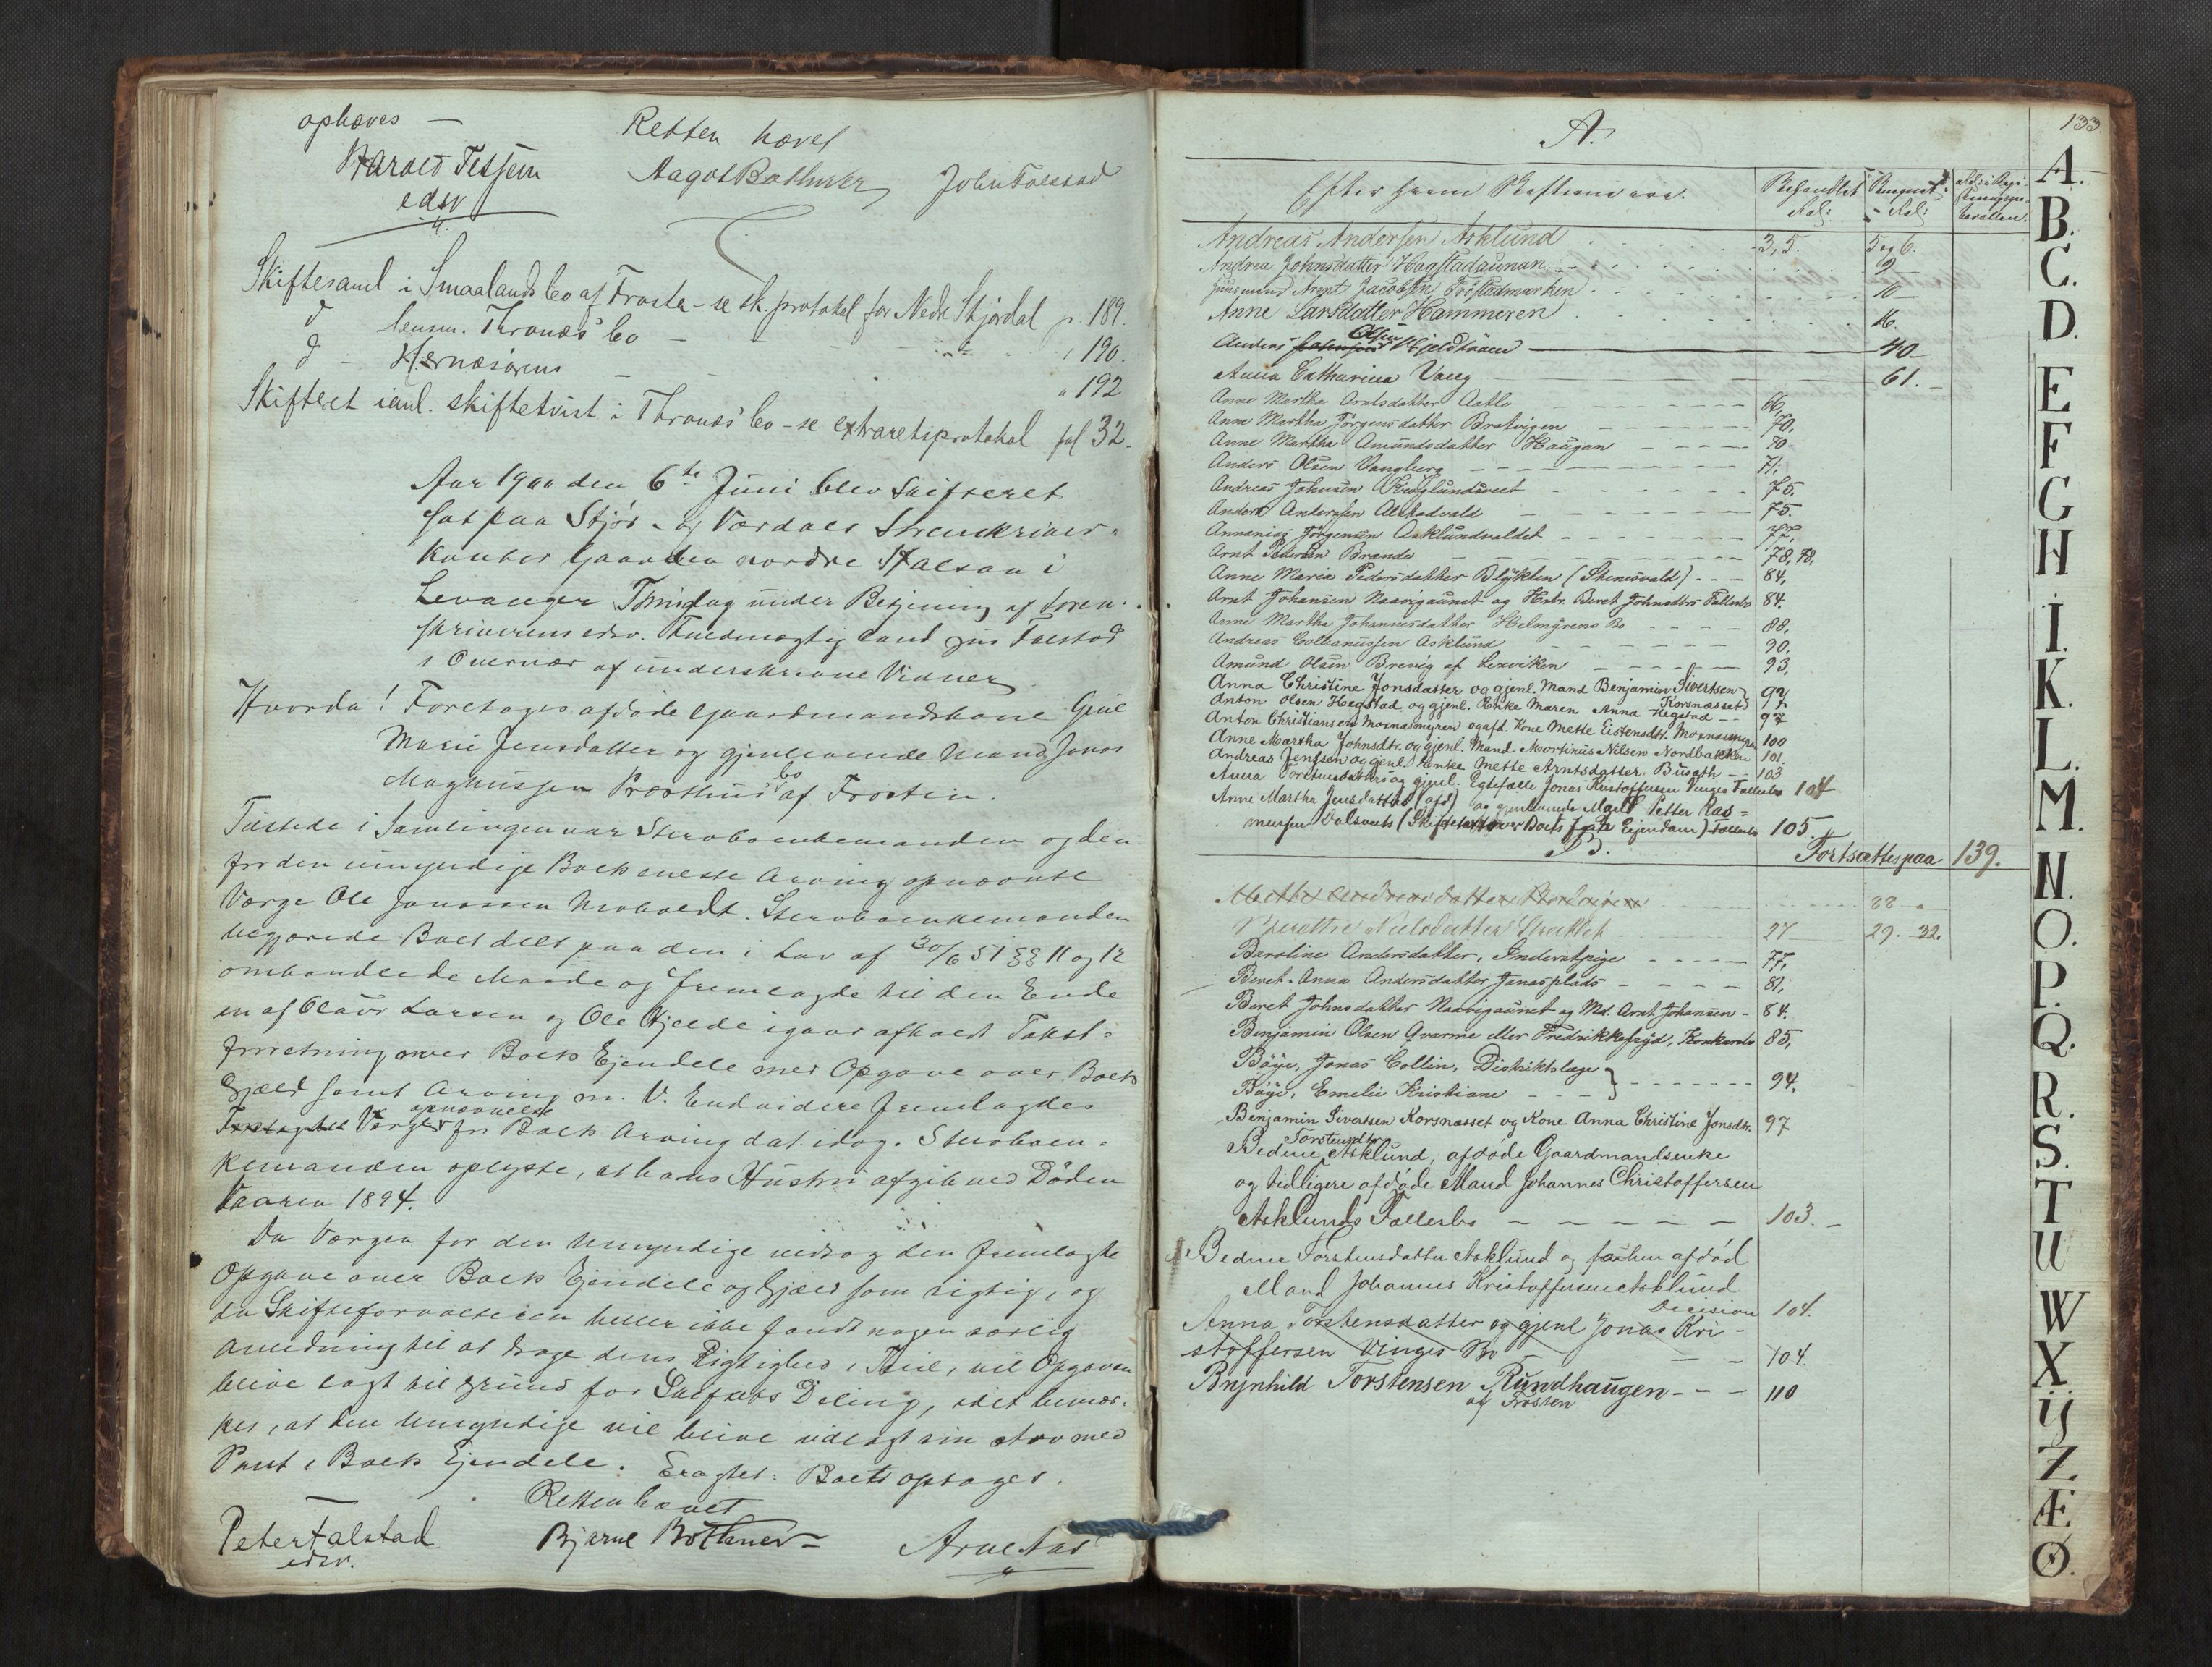 ophæves —
Retten hævet
Harald Tessem
edsv
Aagot Bothner
John Falstad
Skiftesaml i Smaalands bo af Frosta - se sk. protokol for Nedr Stjørdal p. 189.
d lensm. Thronæs' bo — " 190.
d - Hernæsørens — " 192
Skifteret ianl. skiftetvist i Thronæs' bo - se extraretsprotokol fol 32.
Aar 1900 den 6te Juni blev Skifteret
sat paa Stjør- og Værdals Sorenskriver-
kontor Gaarden nordre StaLsan i
Levanger Thinglag under Betjening af Soren-
skriverens edsv. Fuldmægtig cand jur Falstad
i Overvær af underskrevne Vidner
Hvorda! Foretoges afdøde Gaardmandskone
Marie Jensdatter og gjenlevende Mand Jonas
Magnussen Præsthus bo af Frosten.
Tilstede i Samlingen var Sterboenkemanden og den
for den umyndige Boets eneste Arving opnævnte
Værge Ole Jonassen . Sterboenkemanden
begjærede Boet delt paa den i Lov af 30/6 51 §§ 11 og 12
omhandlede Maade og fremlagde til den Ende
en af Olaus Larsen og Ole Hjelde igaar afholdt Takst-
forretning over Boets Ejendele med Opgave over Boets
Gjæld samt Arving m. V. Endvidere fremlagdes
Værge opnævnelse for Boets Arving dat. idag. Sterboen-
kemanden oplyste, at hans Hustru afgik ved Døden
Vaaren 1894.
Da Værgen for den Umyndige vedtog den fremlagte
Opgave over Boets Ejendele og Gjæld som rigtig, og
da Skifteforvalteren heller ikke fandt nogen særlig
Anledning til at drage dens Rigtighed i Tvil, vil Opgaven
blive lagt til grund for Skiftets Deling, idet bemær-
kes, at den Umyndige vil blive udlagt sin Arv med
Pant i Boets Ejendele. Eragtet: Boet optages.
Retten hævet
Peter Falstad
edsv.
Bjarne Bothner
Arne Aas
133.
A.
Efter hvem Skiftet er.
Behandlet Fol:
Andreas Andersen Asklund 3, 5. 5 og 6.
Andrea Johnsdatter Hogstadaunan 9
Huusmand Arent Jacobsen Fostadmarken 10
Anne Larsdatter Hammeren 16.
Anders Olsen Hjeldtraen 40
Anna Catharina Vang 61.
Anne Martha Arntsdatter Aatlo 66,
Anne Martha Jørgensdatter Bratvigen 70.
Anne Martha Amundsdatter Haugan 70
Anders Olsen Vangberg 71.
Andreas Johnsen Kroglundsveet 75.
Anders Andersen Alstadvald 75.
Annanias Jørgensen Asklundvaldet 77.
Arnt Pedersen Brande 78, 78,
Anne Maria Pedersdatter Blykten (Stenesvald) 84,
Arnt Johansen Naavigaunet og Hstr. Beret Johnsdtrs Fællesbo 84.
Anne Martha Johannesdatter Helmyrens Bo 88,
Andreas Coldianussen Asklund 90,
Amund Olsen Brevig af Lexviken 93,
Anna Christine Jonsdatter og gjenl. Mand Benjamin Sivertsen Korsnæsset 97
Anton Olsen Hegstad og gjenl. Enke Maren Anna Hegstad 97
Anton Christiansen Moxnæsmyren og afd. Kone Mette Eistensdtr. Moxnæsmyren 100
Anne Martha Johnsdtr. og gjenl. Mand Mortinus Nilsen Nordbakken 101.
Andreas Jensen og gjenl. Enke Mette Arntsdatter Busath 103
Anna Torstensdatters og gjenl. Egtefælle Jonas Kristoffersen Vinges Fællesbo 104
Anne Martha Jensdatter (afd) og gjenlevende Mand Petter Ras-
mussen Valsaets (Skiftetaxt over Boets faste Ejendom) Fællesbo 105.
B.
Fortsættes paa 139.
Mette Andreasdatter 88
Berethe Nielsdatter 27 29. 32.
Baroline Andersdatter, Inderstpige 77,
Beret Anna Andersdatter Jonasplads 81,
Beret Johnsdatter Naavigaunet og Md. Arnt Johansen 84.
Benjamin Olsen Qvarme eller Fredrikkefryd, Konkursbo 85,
Bøye, Jonas Collin, Distriktslæge
Bøye, Emelie Kristiane } 94.
Benjamin Sivertsen Korsnæsset og Kone Anna Christine Jonsdtr. 97
Bedine Torstensdtr Asklund, afdøde Gaardmandsenke
og tidligere afdøde Mand Johannes Christoffersen
Asklunds Fællesbo 103.
Bedine Torstensdatter Asklund og forhen afdød
Mand Johannes Kristoffersen Asklund
Decision 104.
Anna Torstensdatter og gjenl Jonas Kri-
stoffersen Vinges Bo 104.
Brynhild Torstensen Rundhaugen 110
af Frosten
A.
B.
C.
D.
E
F
G
H
I.
K.
L.
M.
N.
O.
P.
Q.
R.
S.
T
U
W
X
Y
Z.
Æ.
Ø.